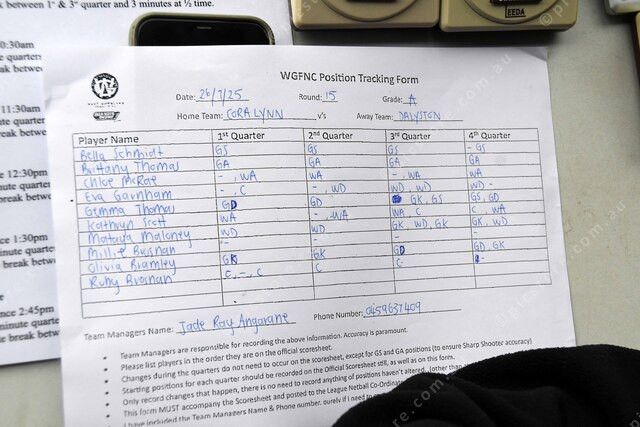 between 1st & 3rd quarter and 3 minutes at ½ time.
0:30am
e quarters
eak betwe
11:30am
ute quarter
reak betwe
12:30pm
nute quarte
break betwe
nce 1:30pm
minute quarte
e break betwe
nce 2:45pm
minute quarte
te break betwe
EEDA
WGFNC Position Tracking Form
Date: 26/7/25 Round: 15 Grade: A
Home Team: CORA LYNN v's Away Team: DALYSTON
Player Name 1st Quarter 2nd Quarter 3rd Quarter 4th Quarter
Bella Schmidt GS GS GS - GS
Brittany Thomas GA GA GA GA
Chloe McRae - , WA WA - , WA WA
Eva Garnham - , C - , WD WD , WD WD -
Gemma Thomas GD GD GK , GS GS, GD
Kathryn Scott WA - , WA WA , C C WA
Mataya Maloney WD WD GK , WD , GK GK , WD
Millie Brosnan - - - -
Olivia Bramley GK GK GD GD , GK
Ruby Brosnan C , - , C C C -
Team Managers Name: Jade Ray Angarane Phone Number: 0459637409
• Team Managers are responsible for recording the above information. Accuracy is paramount.
• Please list players in the order they are on the official scoresheet.
• Changes during the quarters do not need to occur on the scoresheet, except for GS and GA positions (to ensure Sharp Shooter accuracy)
• Starting positions for each quarter should be recorded on the Official Scoresheet still, as well as on this form.
• Only record changes that happen, there is no need to record anything of positions haven't altered. (other than
• This form MUST accompany the Scoresheet and posted to the League Netball Co-Ordinator
• I have included the Team Managers Name & Phone number, purely if I need to